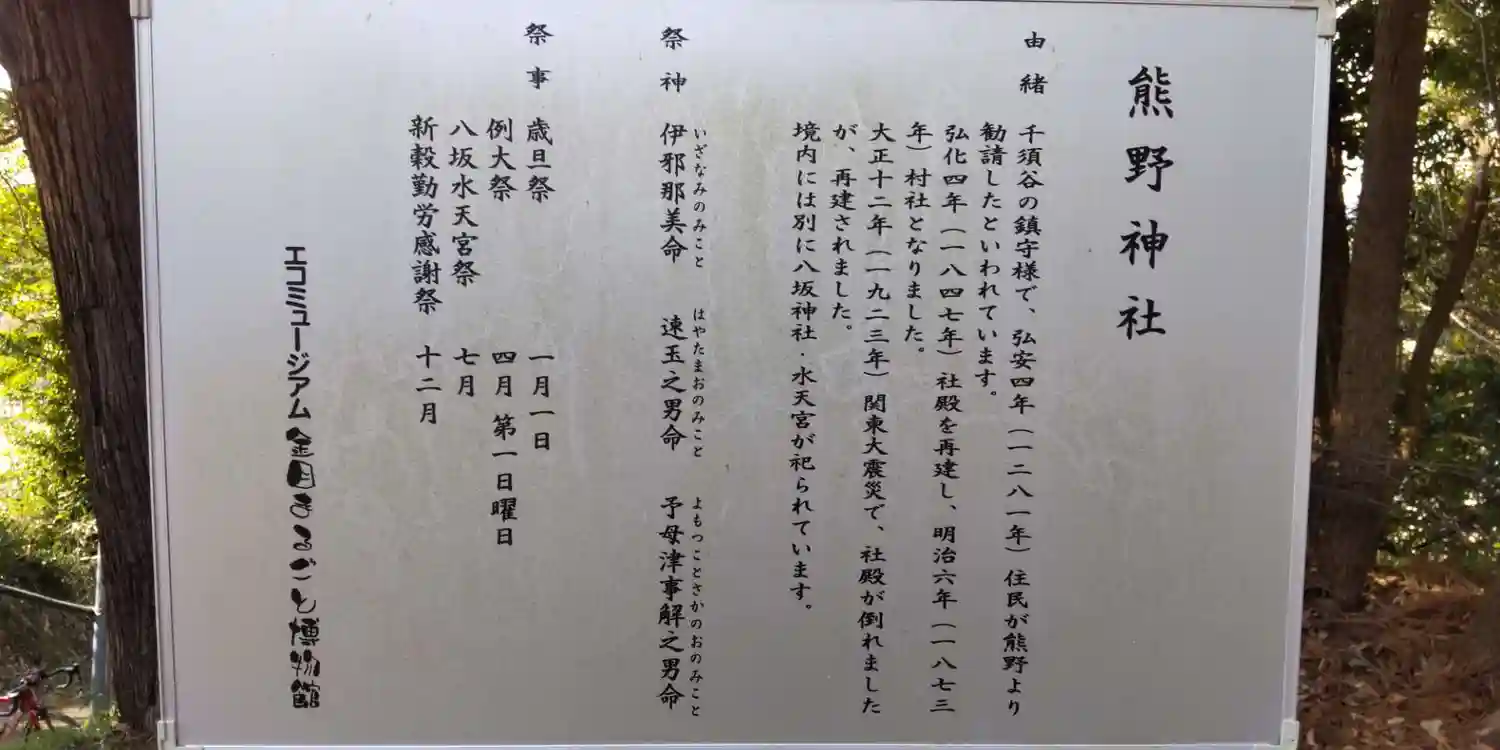 熊野神社
由緒 千須谷の鎮守様で、弘安四年（一二八一年）住民が熊野より
勧請したといわれています。
弘化四年（一八四七年）社殿を再建し、明治六年（一八七三
年）村社となりました。
大正十二年（一九二三年）関東大震災で、社殿が倒れました
が、再建されました。
境内には別に八坂神社・水天宮が祀られています。
いざなみのみこと はやたまおのみこと よもつことさかのおのみこと
祭神 伊邪那美命 速玉之男命 予母津事解之男命
祭事 歳旦祭 一月一日
例大祭 四月 第一日曜日
八坂水天宮祭 七月
新穀勤労感謝祭 十二月
エコミュージアム 金目まるごと博物館